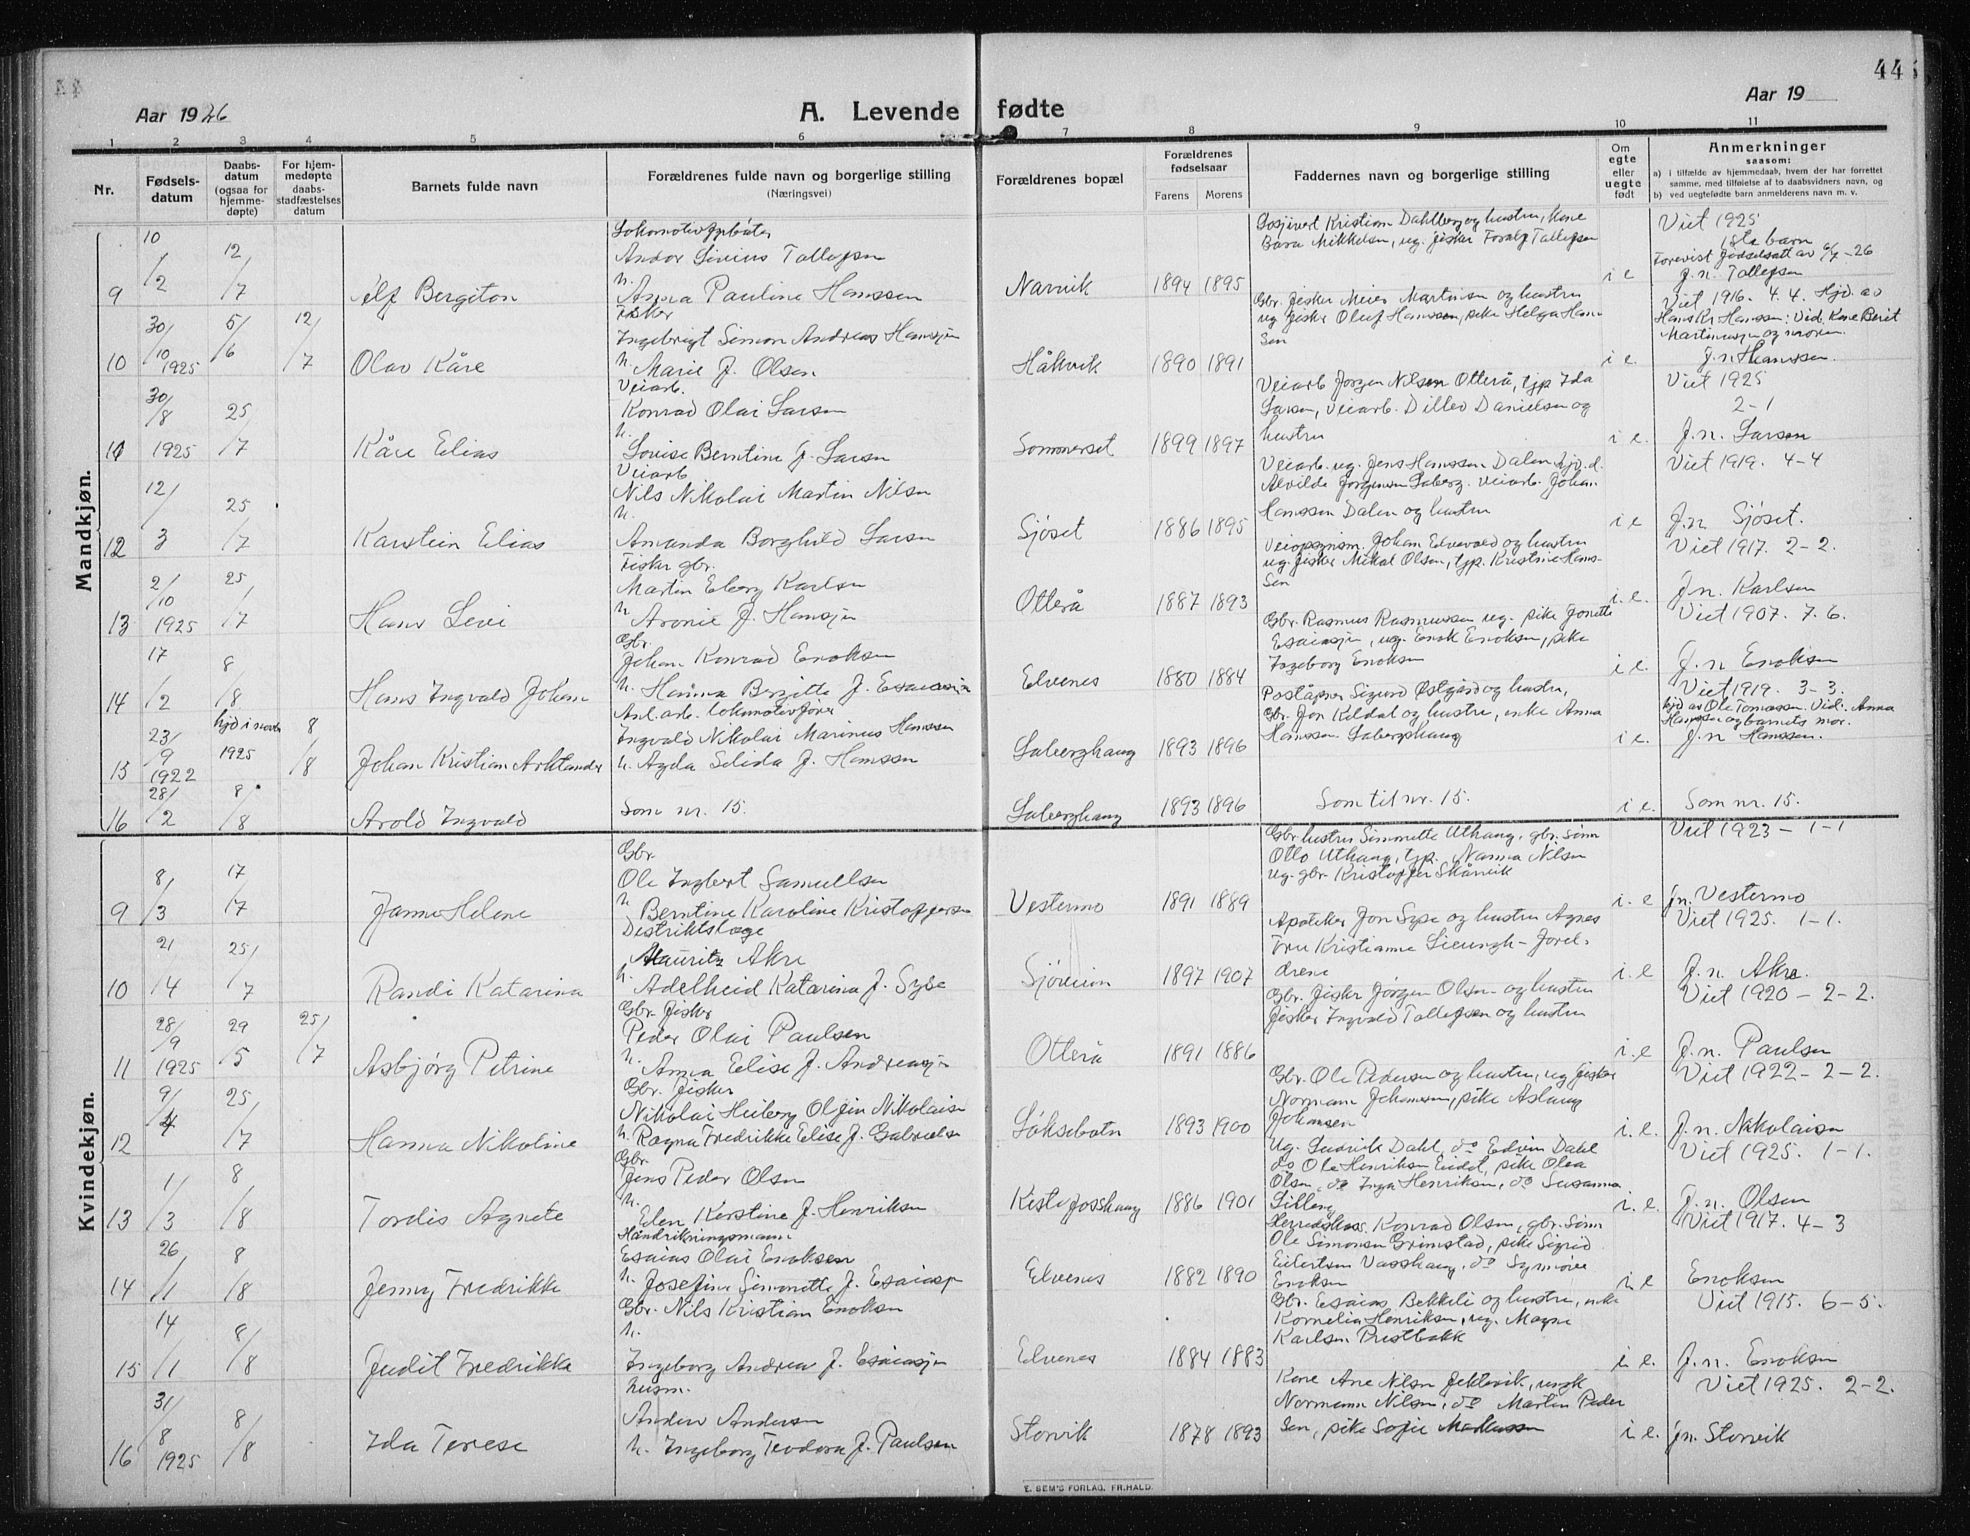 44
Aar 1926
A. Levende fødte
Aar 19
1 2 3 4 5 6 7 8 9 10 11
Nr.
Fødsels-
datum
Daabs-
datum
(ogsaa for
hjemme-
døpte)
For hjem-
medøpte
daabs-
stadfæstelses
datum
Barnets fulde navn
Forældrenes fulde navn og borgerlige stilling
(Næringsvei)
Forældrenes bopæl
Forældrenes
fødselsaar
Farens Morens
Faddernes navn og borgerlige stilling
Om
egte
eller
uegte
født
Anmerkninger
saasom:
a) i tilfælde av hjemmedaab, hvem der har forrettet
samme, med tilføielse af to daabsvidners navn, og
b) ved uegtefødte barn anmelderens navn m. v.
Mandkjøn.
9 10/2 12/7 Alf Bergiton
Andor Sivius Tollefsen
h. Anna Pauline Hanssen
Narvik 1894 1895
Bara Mikkelsen, ug. fisker
i e
Viet 1925
1ste barn
Forevist fødselsatt av 6/7-26
J. n. Tollefsen
10 30/10 1925 5/6 12/7 Olav Kåre
Fisker
Ingebrigt Simon Andreas Hanssen
h. Marie f. Olsen
Håkvik 1890 1891
Gbr. fisker Meier Martinsen og hustru
ug. fisker Oluf Hanssen, pike Helga Hans-
sen
i e
Viet 1916. 4.4. Hjd. av
Hans Kr. Hanssen: Vid. Kone Berit
J. n. Hanssen.
11 30/8 1925 25/7 Kåre Elias
Veiarb.
Konrad Olai Larsen
h.
Lovise Berntine f. Larsen
Sommerset 1899 1897
Veiarb. Jørgen Nilsen Otterå, tjp Ida
Larsen, veiarb. Ditlev Danielsen og
hustru
i e.
Viet 1925
2-1
J. n. Larsen
12 12/3 25/7 Karstein Elias
Veiarb
Nils Nikolai Martin Nilsen
h.
Amanda Borghild Larsen
Sjöset 1886 1895
Veiarb. ug. Jens Hanssen Dalen, hjv. d.
Alvilde Jørgensen Laberg. veiarb. Johan
Hanssen Dalen og hustru
i e
Viet 1919. 4-4
J. n. Sjöset.
13 2/10 1925 25/7 Hans Levi
Fisker gbr.
Martin Eberg Karlsen
h. Aronie f. Hanssen
Otterå 1887 1893
Johan Elvevold og hustru
ug. fisker Mikal Olsen, tjp. Kristine Hans-
sen
i. e.
Viet 1917. 2-2.
J. n. Karlsen
14 17/2 8/8 Hans Ingvald Johan
Gbr
Johan Konrad Enoksen
h. Hanna Bergitte f. Esaiassen
Elvenes 1880 1884
Gbr. Rasmus Rasmussen ug. pike Jonette
Esaiassen, ug. Enok Enoksen, pike
Ingeborg Enoksen
i e.
Viet 1907. 7.6.
J. n Enoksen
15 23/9 1922 hjd i nov 1925 8/8 Johan Kristian Arktander
Anl. arb. lokomotivfører
Ingvald Nikolai Marinus Hanssen
h. Agda Selida f. Hanssen
Laberghaug 1893 1896
Poståpner Sigurd Østgård og hustru,
Gbr. Jon Kildal og hustru, enke Anna
Hanssen Laberghaug
i e.
Viet 1919. 3-3.
hjd av Ole Tomassen. Vid. Anna
Hanssen og barnets mor.
J. n Hanssen.
16 28/2 8/8 Arold Ingvald
Som nr. 15.
Laberghaug 1893 1896
Som til nr. 15.
i e.
Som nr. 15.
Kvindekjøn.
9 8/3 17/7 Janna Helene
Gbr.
Ole Ingbert Samuelsen
h. Berntine Karoline Kristoffersen
Vestermo 1891 1889
Gbr. hustru Simonette Uthaug, gbr. sønn
Otto Uthaug, tjp. Nanna Nilsen
ug. gbr. Kristoffer Skårvik
i. e
Viet 1923 - 1-1
J. n. Vestermo
10 21/4 25/7 Randi Katarina
Distriktslæge
Mauritz Akre
h. Adelheid Katarina f. Sype
Sjøveien 1897 1907
Apoteker Jon Sype og hustru Agnes
Fru Kristianne - forel-
drene
i. e
Viet 1925. 1-1.
J. n. Akre.
11 28/9 1925 29/5 25/7 Asbjørg Petrine
Gbr. fisker
Peder Olai Paulsen
h. Anna Elise f. Andreassen
Otterå 1891 1886
Gbr. fisker Jørgen Olsen og hustru
fisker Ingvald Tollefsen og hustru
i. e
Viet 1920 - 2-2.
J. n. Paulsen
12 9/4 25/7 Hanna Nikoline
Gbr. fisker
Nikolai Heiberg Olfin Nikolaisen
h. Ragna Fredrikke Elise f. Gabrielsen
Løksebotn 1893 1900
Gbr. Ole Pedersen og hustru, ug fisker
Normann Johansen, pike Aslaug
Johansen
i. e.
Viet 1922 - 2-2.
J. n. Nikolaisen
13 1/3 8/8 Tordis Agnete
Gbr
Jens Peder Olsen
h.
Elen Kerstine f. Henriksen
1886 1901
Ug. Ludvik Dahl, do Edvin Dahl
do Ole Henriksen Eidet, pike Olea
Olsen, do Inga Henriksen, do Susanna
i. e.
Viet 1925. 1-1.
J. n. Olsen
14 26/1 8/8 Jenny Fredrikke
Esaias Olai Enoksen
h. Josefine Simonette f. Esaiassen
Elvenes 1882 1890
Konrad Olsen, gbr. sønn
Ole Simonsen Grimstad, pike Sigrid
Eilertsen Vasshaug, do Synnøve
Enoksen
i e
Viet 1917. 4-3
Enoksen
15 14/1 8/8 Judit Fredrikke
Gbr. Nils Kristian Enoksen
h.
Ingeborg Andrea f. Esaiassen
Elvenes 1884 1883
Gbr. Esaias Bekkeli og hustru, enke
Kornelia Henriksen, ug. Magne
Karlsen Prestbakk
i. e.
Viet 1915. 6-5.
J. n. Enoksen
16 31/8 1925 8/8 Ida Terese
husm.
Anders Andersen
h. Ingeborg Teodora f. Paulsen
Storvik 1878 1893
Kone Ane Nilsen Jektevik, ungk
Normann Nilsen, do Martin Peder
sen, pike Sofie Markussen
i e.
Viet 1925. 2-2.
J. n. Storvik
E. SEM'S FORLAG, FR.HALD.